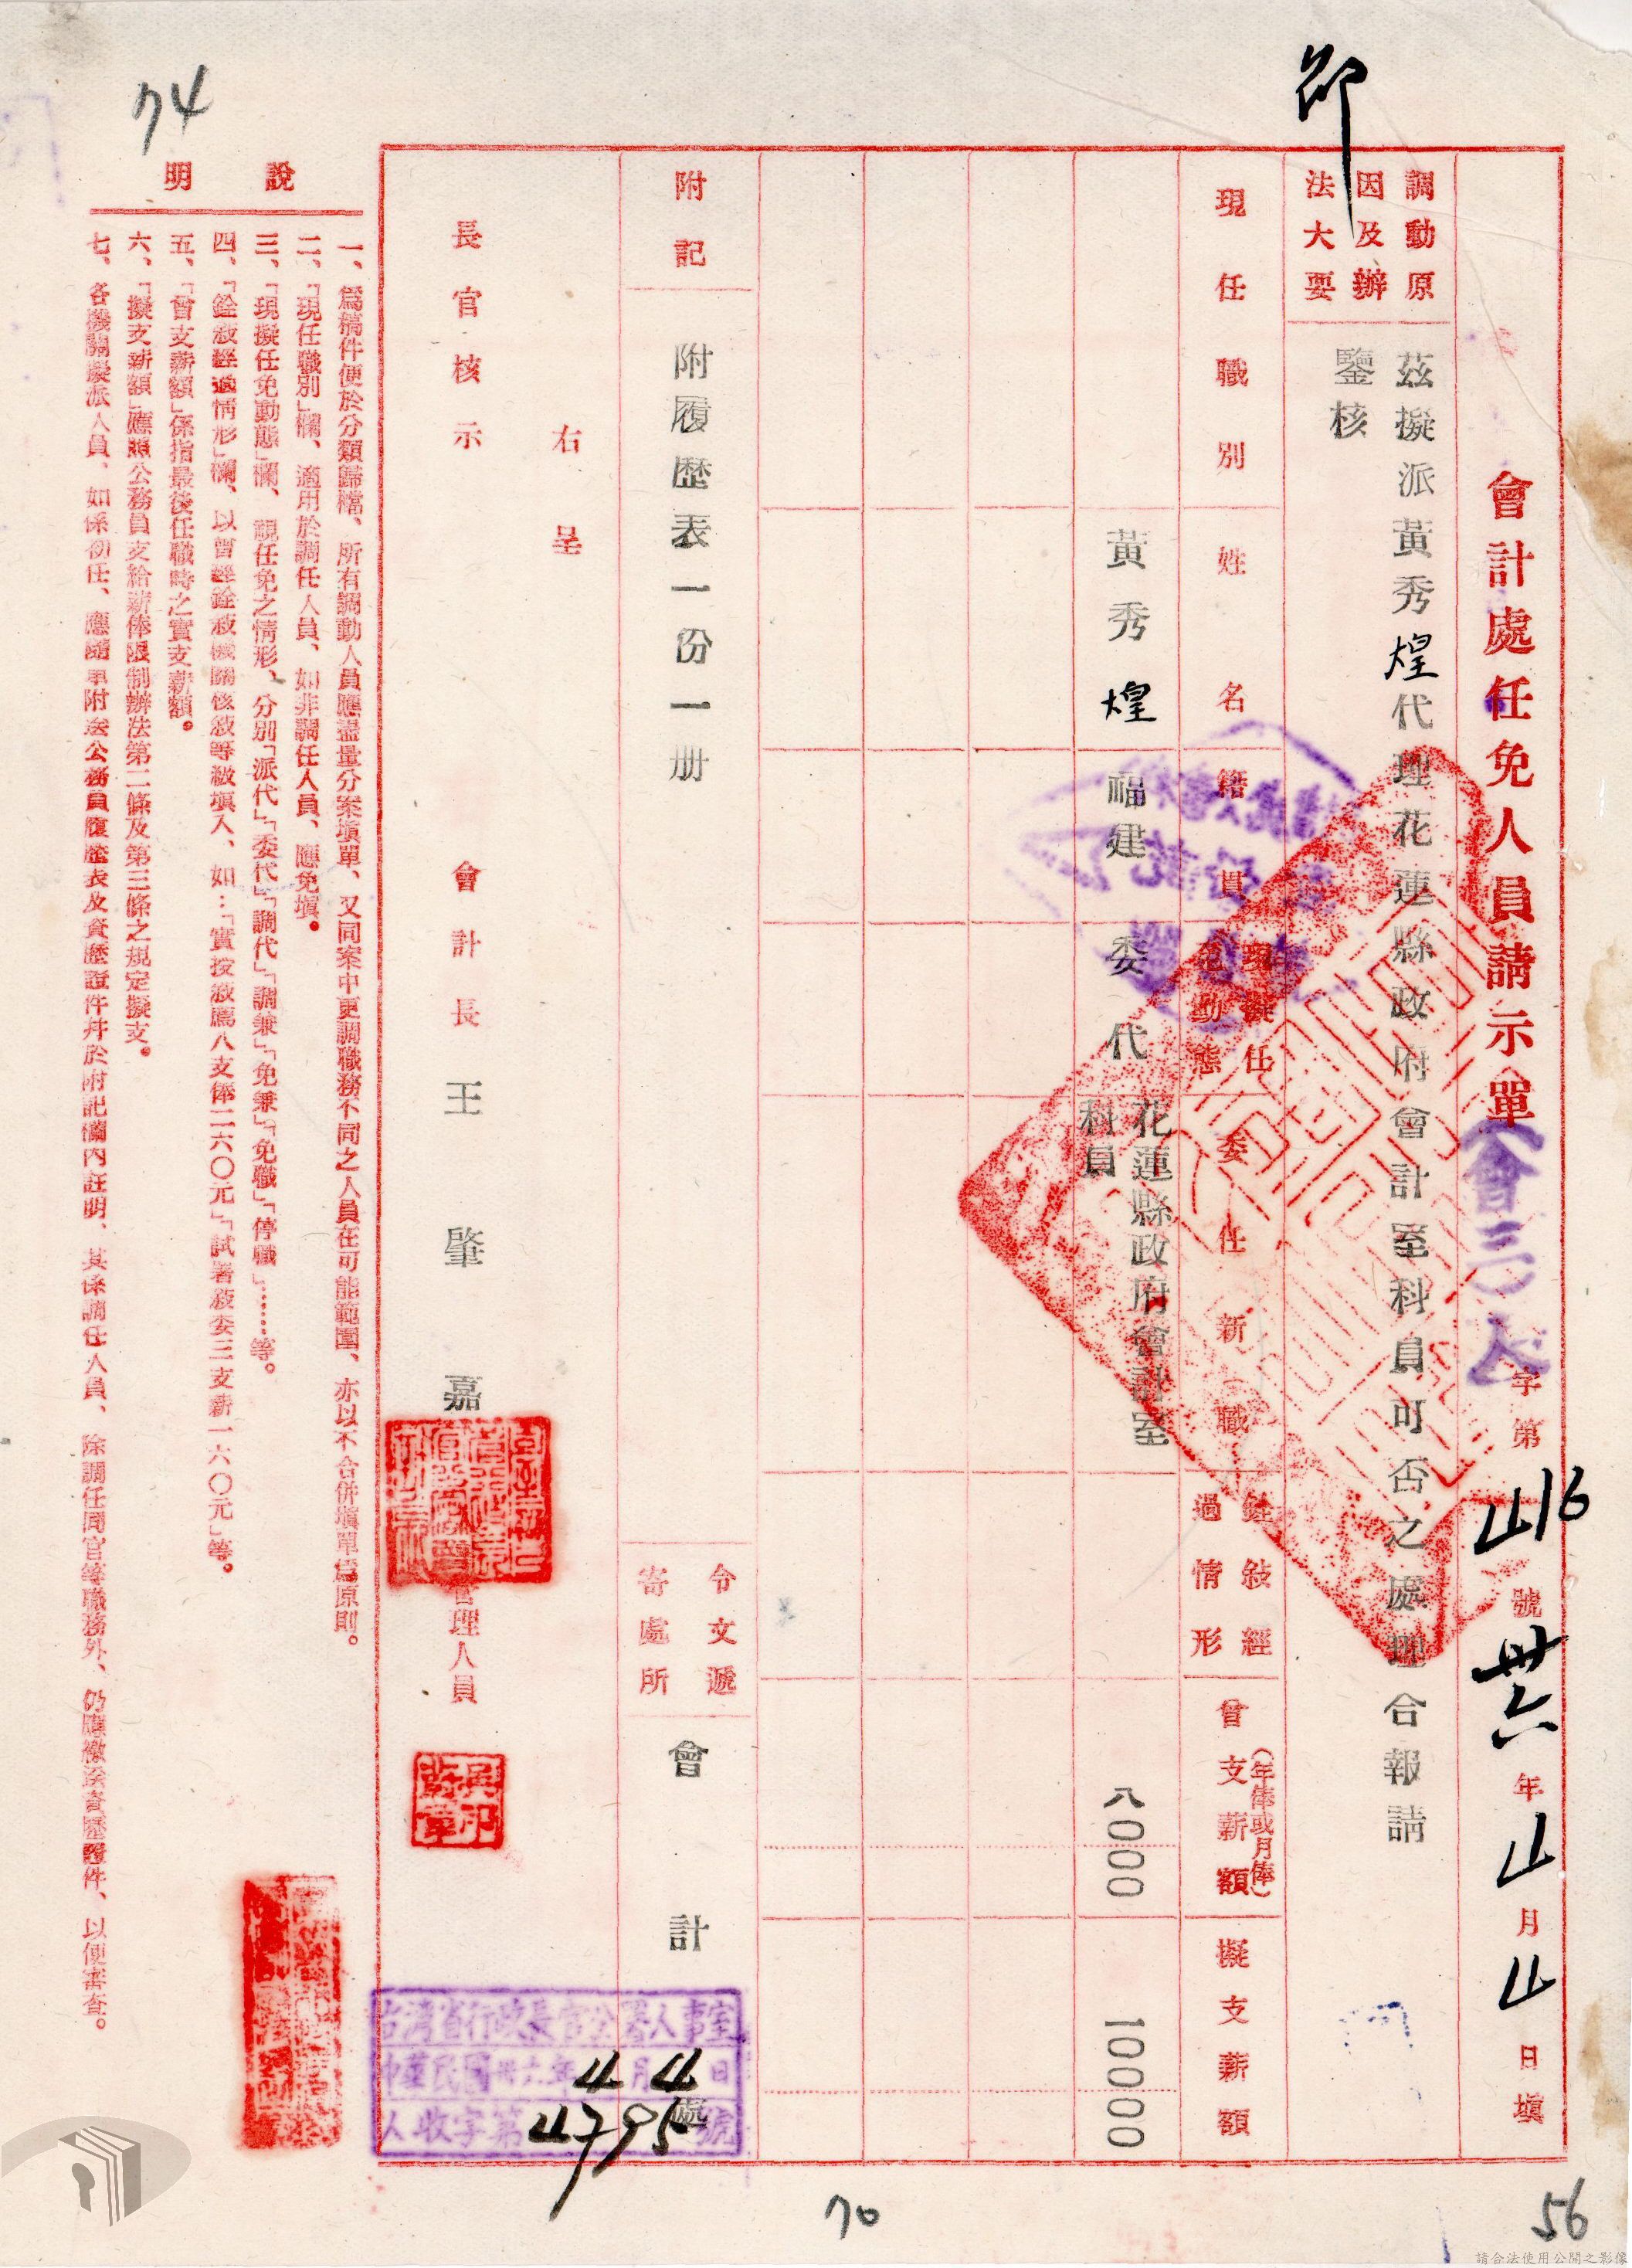 會計處任免人員請示單
會三人字第416號卅六年4月4日填
卬
調動原因及辦法大要
茲擬派黃秀煌代理花蓮縣政府會計室科員可否之處理合報請
鑒核
現任職別
姓名
籍貫
現擬任免動態
委任新職
銓敍經過情形
曾支薪額
(年俸或月俸)
擬支薪額
黃秀煌
福建
委代
花蓮縣政府會計室
科員
八〇〇〇
一〇〇〇〇
附記
附履歷表一份一册
令文遞寄處所
會計處
右呈
長官核示
會計長王肇嘉
管理人員
台灣省行政長官公署人事室
中華民國卅六年4月4日
人收字第4795號
說明
一、爲稿件便於分類歸檔、所有調動人員應盡量分案塡單、又同案中更調職務不同之人員在可能範圍、亦以不合併塡單爲原則。
二、「現任職別」欄、適用於調任人員、如非調任人員、應免塡。
三、「現擬任免動態」欄、視任免之情形、分別「派代」「委代」「調代」「調兼」「免兼」「免職」「停職」……等。
四、「銓敍經過情形」欄、以曾經銓敍機關核敍等級塡入、如:「實授敍薦八支俸二六〇元」「試署敍委三支薪一六〇元」等。
五、「曾支薪額」係指最後任職時之實支薪額。
六、「擬支薪額」應照公務員支給薪俸限制辦法第二條及第三條之規定擬支。
七、各機關擬派人員、如係初任、應隨單附送公務員履歷表及資歷證件幷於附記欄內註明、其係調任人員、除調任同官等職務外、仍應檢送資歷證件、以便審查。
74
70
56
請合法使用公開之影像